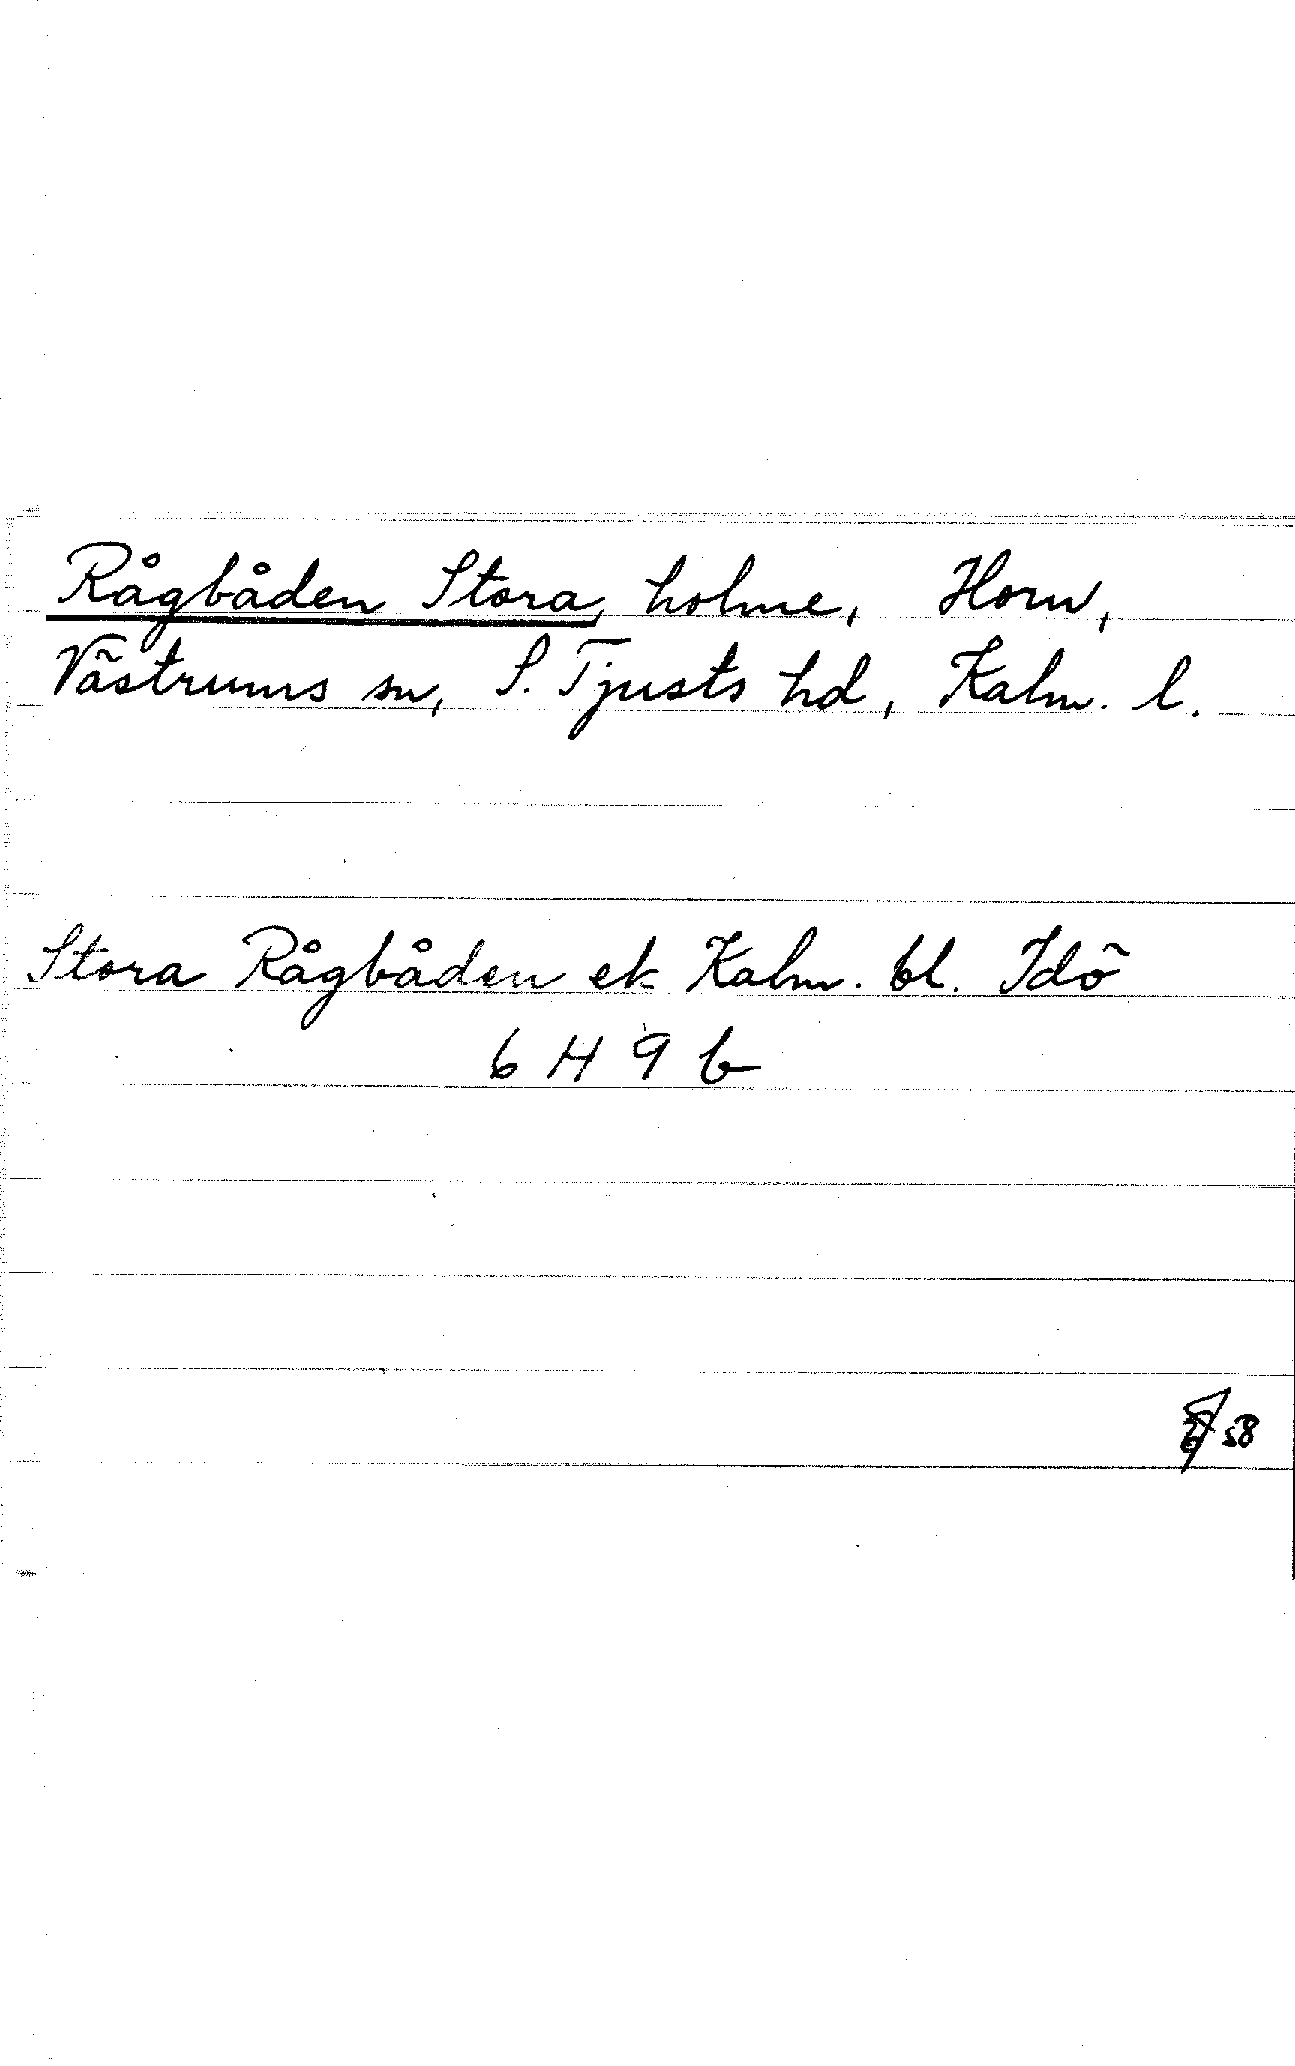 Rågbåden Stora, holme, Horn,
Västrums sn, S. Tjusts hd, Kalm. l.
Stora Rågbåden ek Kalm. bl. Idö
6 H 9 b
58